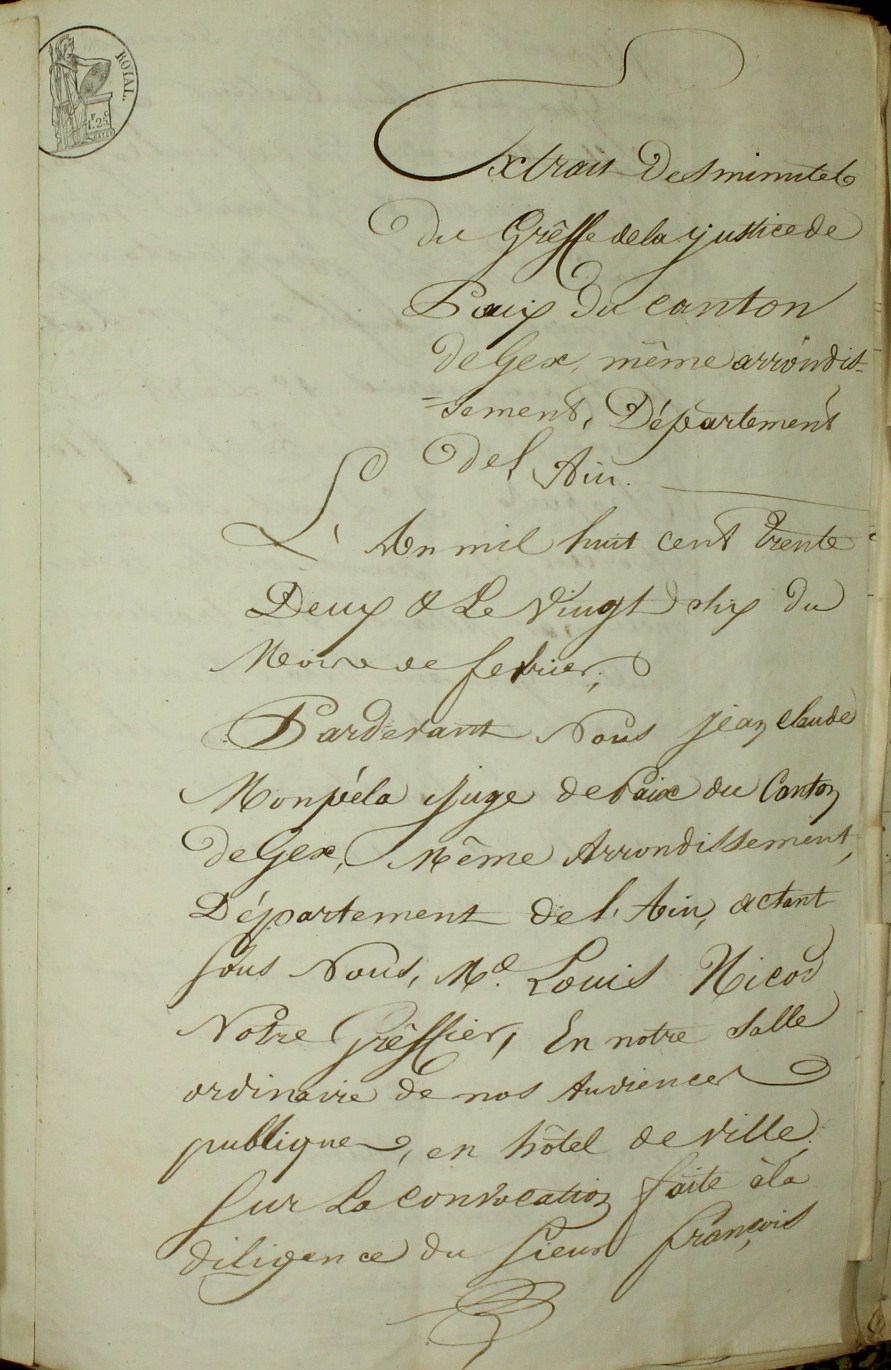 ROYAL.
1.25
Extrait Des minutes
Du Grêffe de la justice de
Paix Du canton
De Gex, même arrondis-
=sement, Département
De l'Ain.
L'An mil huit cent trente
Deux & Le Vingt Six Du
Mois de février,
Pardevant Nous jean claude
Monpéla juge de Paix du Canton
De Gex, Même Arrondissement,
Département de l'Ain, actant
sous Nous, Me. Louis Nicod
Notre Grêffier, En notre salle
ordinaire de nos Audiences
publiques, en hôtel de ville,
Sur La convocation faite à la
diligence du Sieur françois